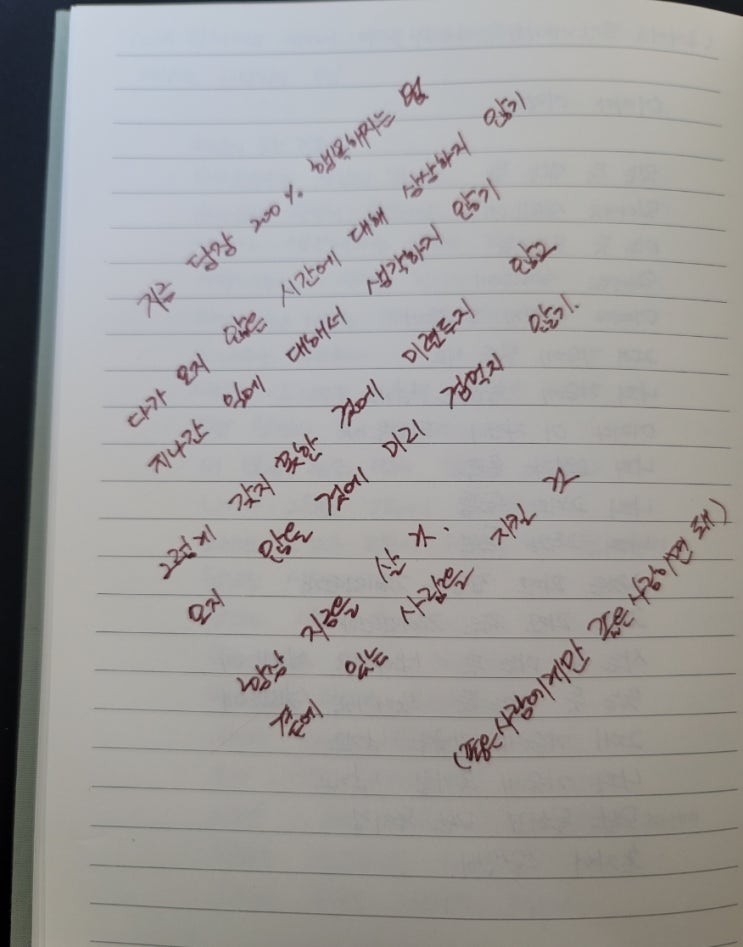 지금 당장 200% 행복해지는 법
다가 오지 않은 시간에 대해 상상하지 않기
지나간 일에 대해서 생각하지 않기
그렇게 갖지 못한 것에 미련두지 않고
오지 않은 것에 미리 겁먹지 않기.
항상 지금을 산 것.
곁에 있는 사람을 지킨 것
(좋은사람에게만 좋은 사람이면 돼)